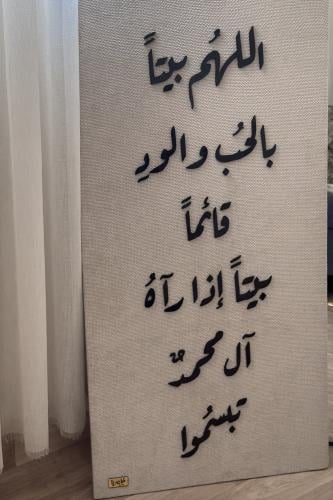 اللهُم بيتاً
بالحُب والودِ
قائماً
بيتاً إذا رآهُ
آل محمدٌ
تبسُموا